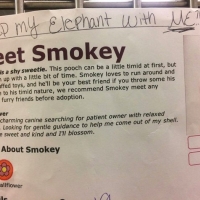 my Elephant with ME
eet Smokey
is a shy sweetie. This pooch can be a little timid at first, but
up with a little bit of time. Smokey loves to run around and
ffed toys, and he'll be your best friend if you throw some his
to his timid nature, we recommend Smokey meet any
furry friends before adoption.
ver
charming canine searching for patient owner with relaxed
Looking for gentle guidance to help me come out of my shell.
e sweet and kind and I'll blossom.
About Smokey
allflower